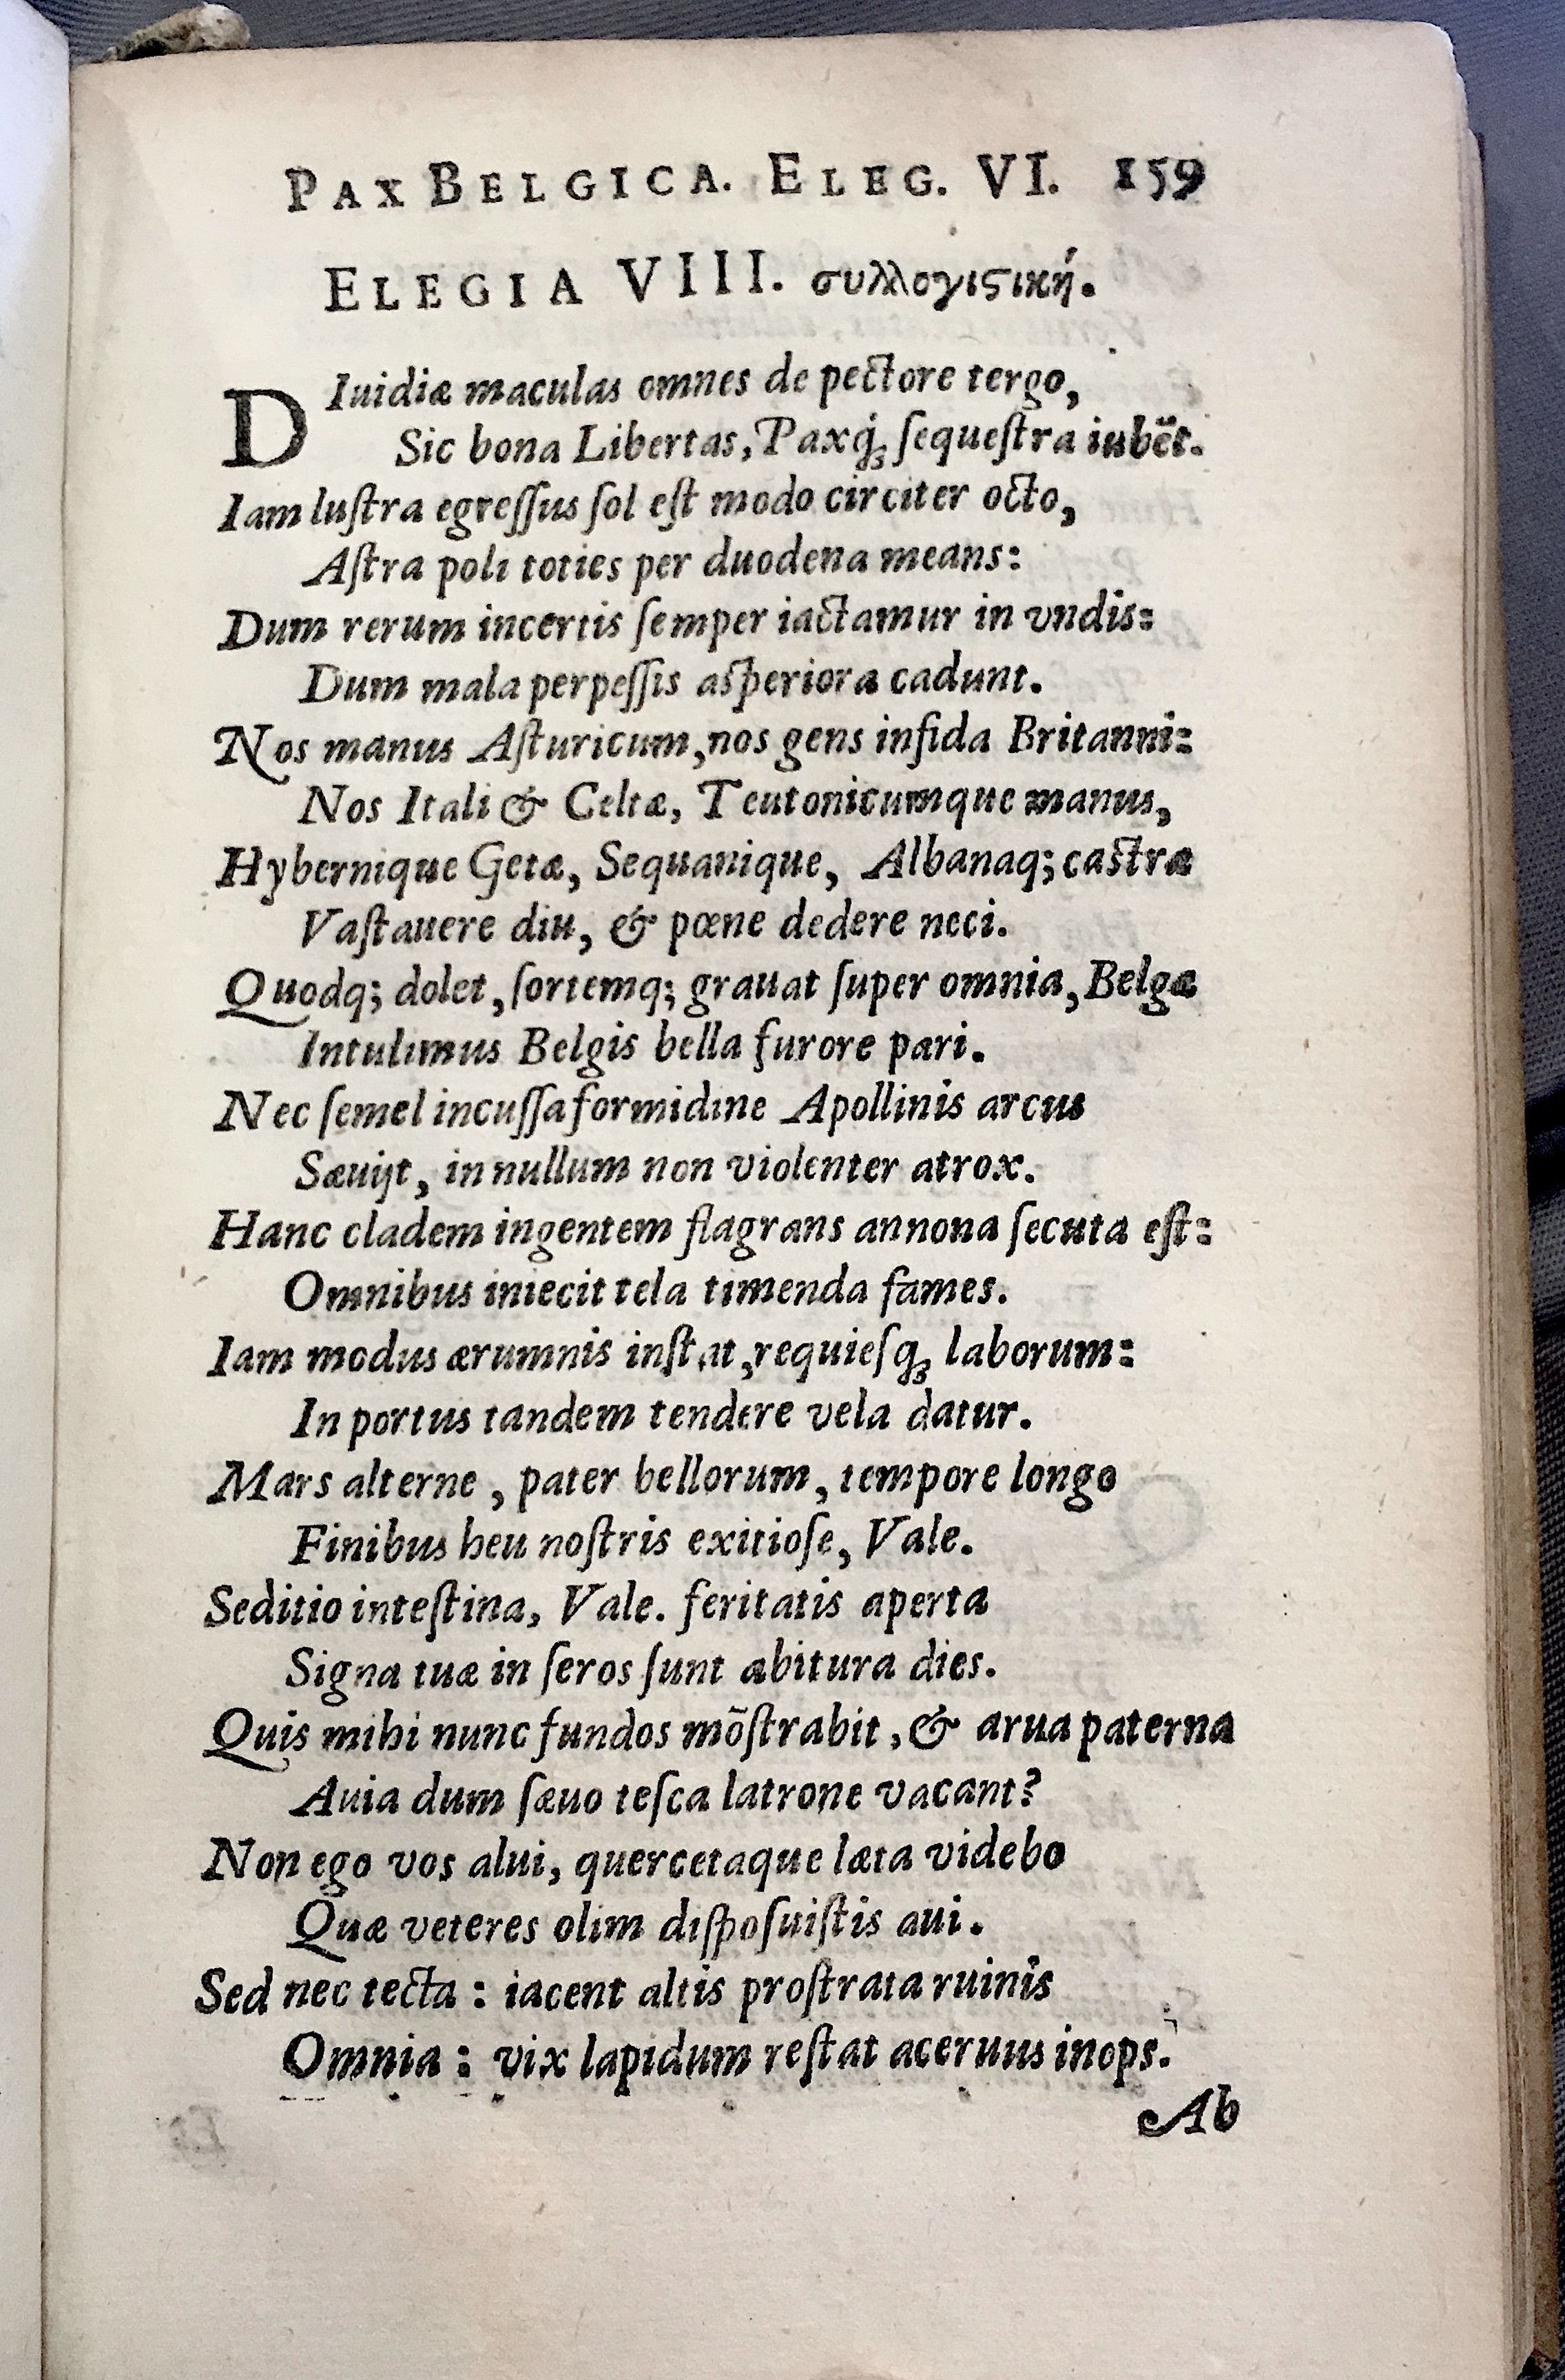 PAX BELGICA. ELEG. VI. 159
ELEGIA VIII. συλλογιϛική.
DIuidiæ maculas omnes de pectore tergo,
Sic bona Libertas, Paxq́ꝫ ſequeſtra iubēt.
Iam luſtra egreſſus ſol eſt modo circiter octo,
Aſtra poli toties per duodena means:
Dum rerum incertis ſemper iactamur in vndis:
Dum mala perpeſſis aſperiora cadunt.
Nos manus Aſturicum, nos gens infida Britanni:
Nos Itali & Celtæ, Teutonicumque manus,
Hybernique Getæ, Sequanique, Albanaq; caſtra
Vaſtauere diu, & pœne dedere neci.
Quodq; dolet, ſortemq; grauat ſuper omnia, Belgæ
Intulimus Belgis bella furore pari.
Nec ſemel incuſſa formidine Apollinis arcus
Sæuijt, in nullum non violenter atrox.
Hanc cladem ingentem flagrans annona ſecuta eſt:
Omnibus iniecit tela timenda fames.
Iam modus ærumnis inſtat, requieſq́ꝫ laborum:
In portus tandem tendere vela datur.
Mars alterne, pater bellorum, tempore longo
Finibus heu noſtris exitioſe, Vale.
Seditio inteſtina, Vale. feritatis aperta
Signa tuæ in ſeros ſunt abitura dies.
Quis mihi nunc fundos mōſtrabit, & arua paterna
Auia dum ſæuo teſca latrone vacant?
Non ego vos alui, quercetaque læta videbo
Quæ veteres olim diſpoſuiſtis aui.
Sed nec tecta: iacent altis proſtrata ruinis
Omnia: vix lapidum reſtat aceruus inops.
Ab